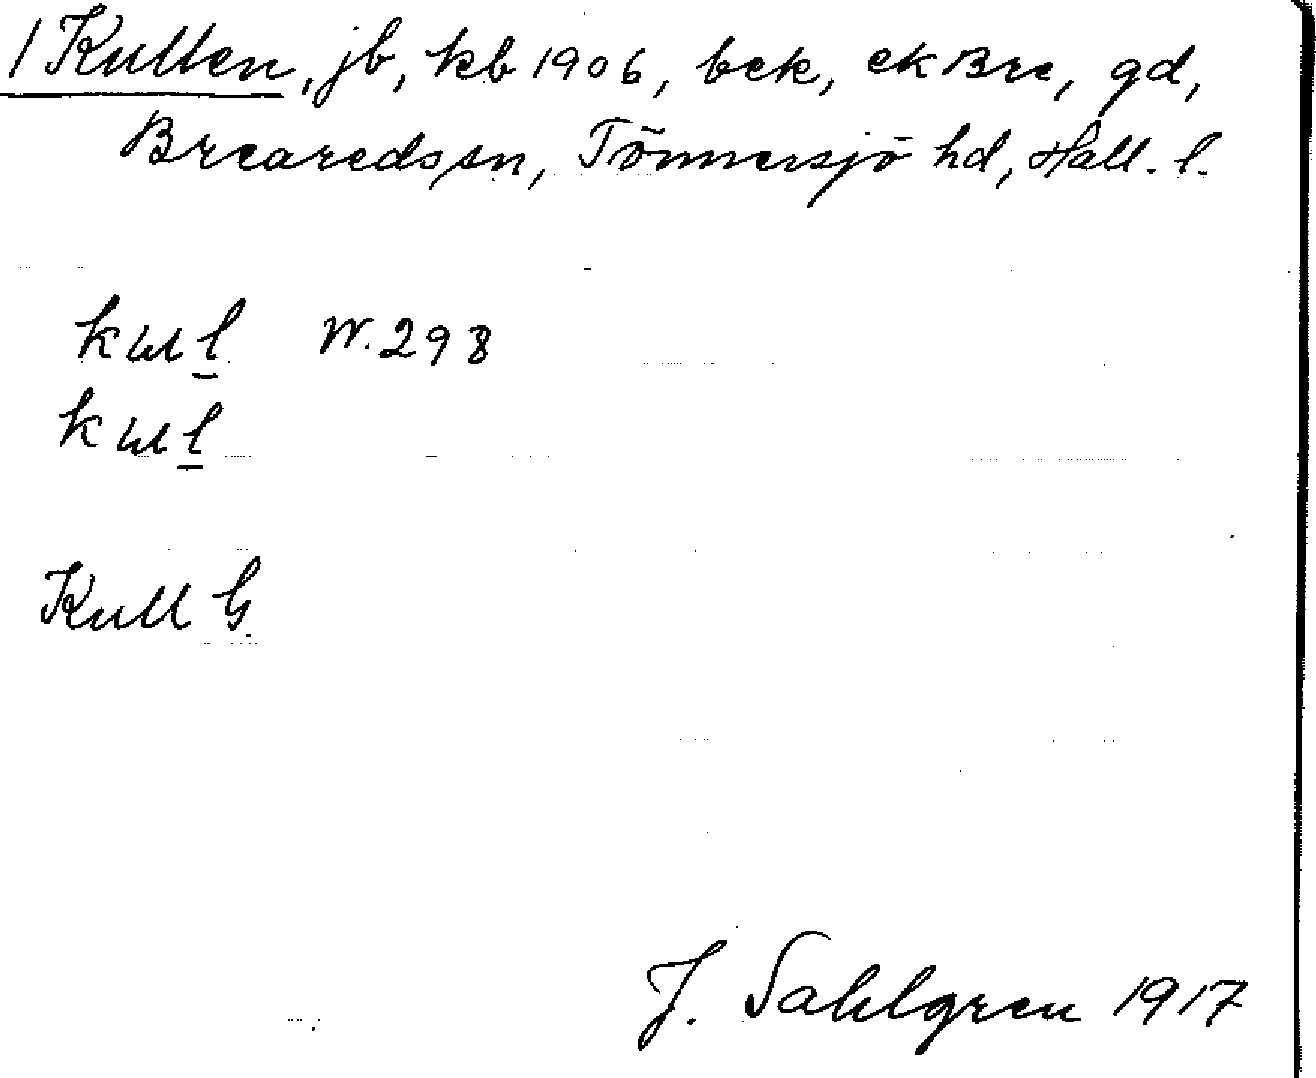 1 Kullen, jb, kb 1906, bek, ekBre, gd,
Brearedssn, Tönnersjö hd, Hall. l.
kul W. 298
kul
Kull G.
J. Sahlgren 1917